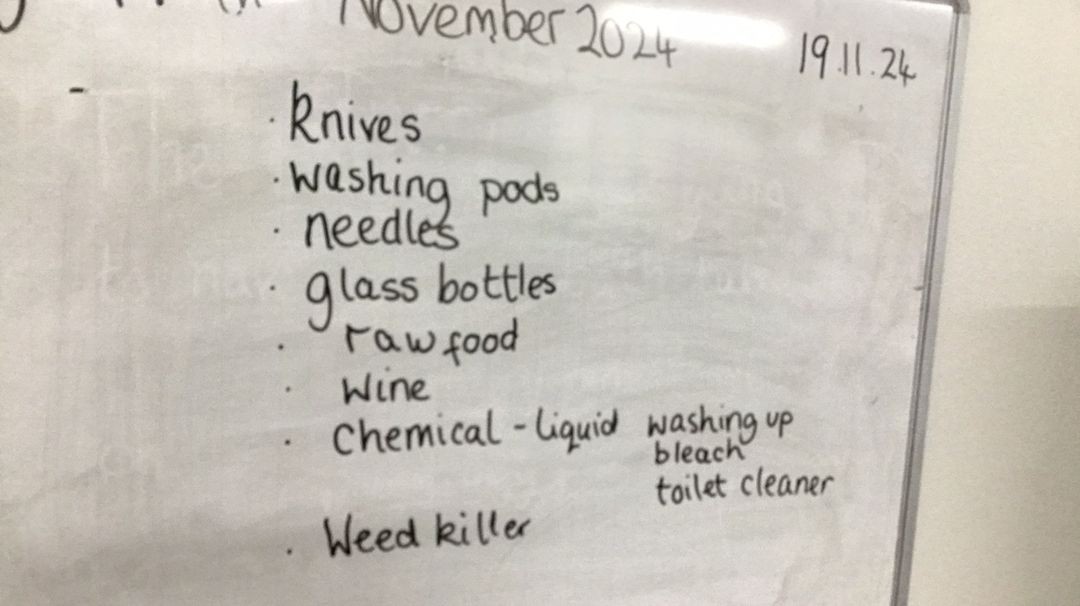 November 2024
19.11.24
-
· Knives
· washing pods
· needles
· glass bottles
· raw food
· Wine
· Chemical - liquid washing up
bleach
toilet cleaner
· Weed killer